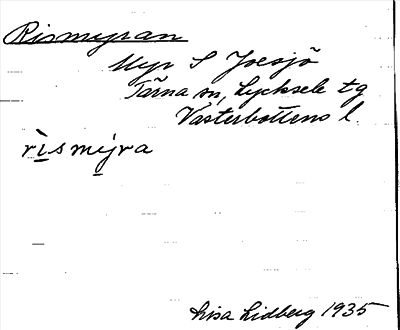 Rismyran
Myr S Joesjö
Tärna sn, Lycksele tg
Västerbottens l.
rìsmy̲ra
Lisa Lidberg 1935